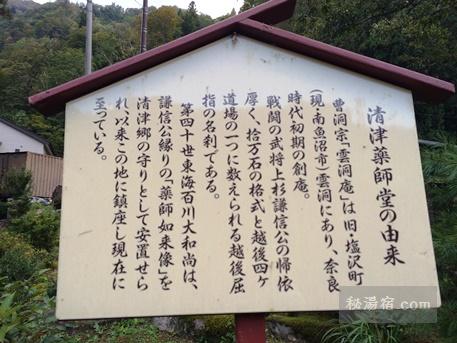 清津薬師堂の由来
曹洞宗「雲洞庵」は旧・塩沢町
(現・南魚沼市)雲洞にあり、奈良
時代初期の創庵。
戦闘の武将上杉謙信公の帰依
厚く、拾万石の格式と越後四ケ
道場の一つに数えられる越後屈
指の名刹である。
第四十世東海百川大和尚は、
謙信公縁りの「薬師如来像」を
清津郷の守りとして安置せら
れ、以来この地に鎮座し現在に
至っている。
秘湯宿.com